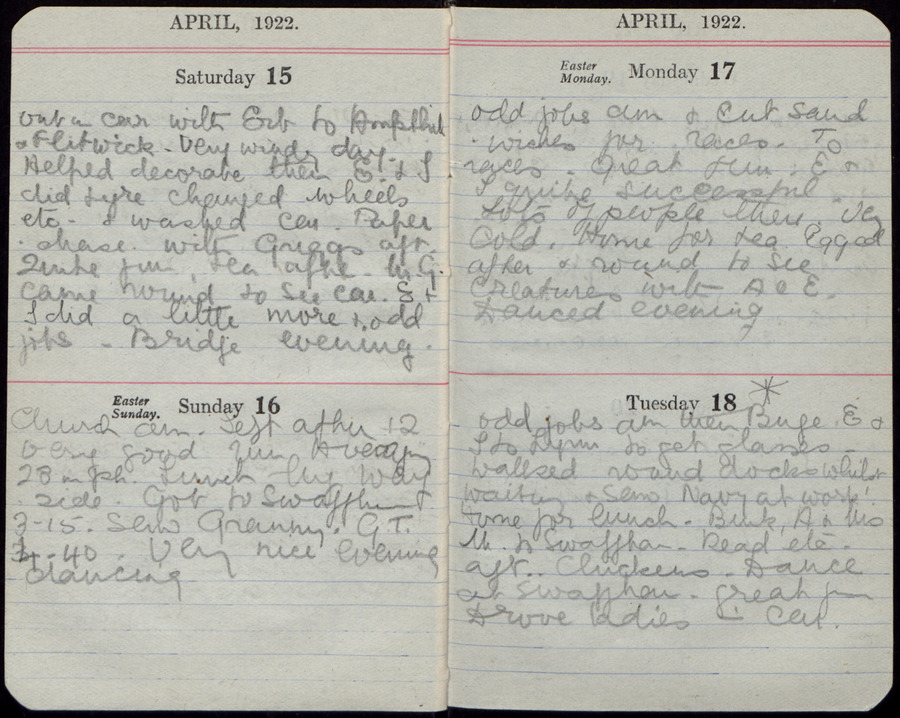 APRIL, 1922.
Saturday 15
out in car with Erb to Ampthill
& Flitwick - Very windy day.
Helped decorate then E. & I
did tyre changed wheels
etc. & washed car. Paper
chase with Griggs aft.
Quite fun, tea after. Mr. G.
came round to see car. E +
I did a little more odd
jobs - Bridge evening.
Easter Sunday. Sunday 16
Church am. Left after 12
very good run Averaging
28 m.p.h. Lunch by way
side. Got to Swaffham
3-15. Saw Granny. G.T.
4-40. Very nice evening
dancing
APRIL, 1922.
Easter Monday. Monday 17
odd jobs am & cut sand
wiches for races. To
races. Great fun, E &
I quite successful.
Lots of people there. Very
Cold. Home for tea. Egged
after & round to see
creatures with A & E.
Danced evening
Tuesday 18
odd jobs am then E &
I to Lynn to get glasses
walked round docks whilst
waiting & saw Navy at work!
Home for lunch. A & Ms
M. to Swaffham. Read etc.
aft. Chickens. Dance
at Swaffham. great fun
Drove ladies car.